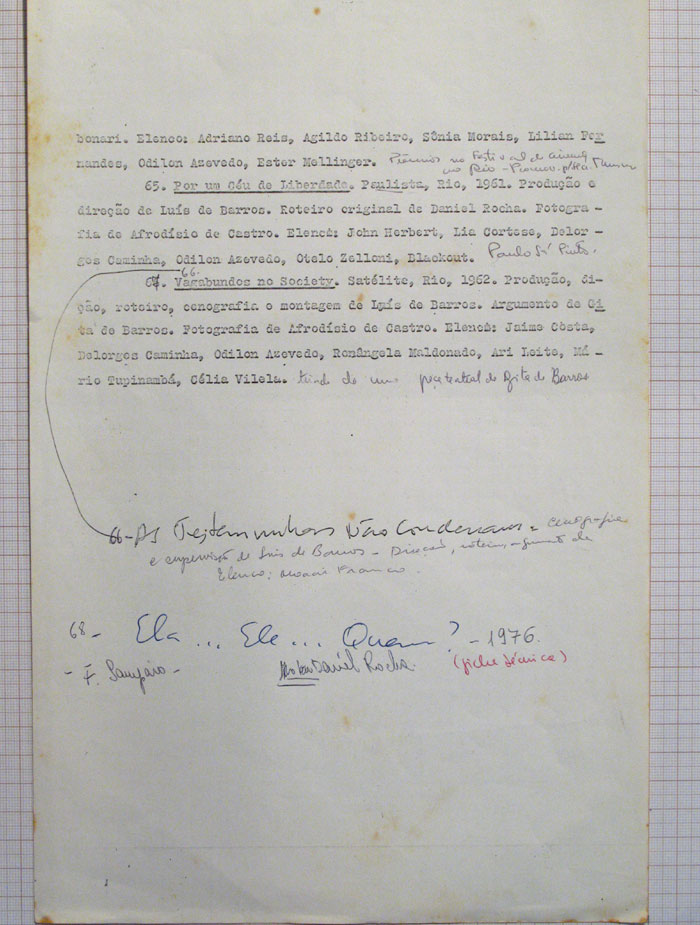 bonari. Elenco: Adriano Reis, Agildo Ribeiro, Sônia Morais, Lilian Fer
nandes, Odilon Azevedo, Ester Mellinger. Prêmios no Festival de
no Rio -
65. Por um Céu de Liberdade. Paulista, Rio, 1961. Produção e
direção de Luís de Barros. Roteiro original de Daniel Rocha. Fotogra-
fia de Afrodísio de Castro. Elenco: John Herbert, Lia Cortese, Delor-
ges Caminha, Odilon Azevedo, Otelo Zelloni, Blackout. Paulo Sá Pinto.
66.
Vagabundos no Society. Satélite, Rio, 1962. Produção, di-
ção, roteiro, cenografia e montagem de Luís de Barros. Argumento de Gi
ta de Barros. Fotografia de Afrodísio de Castro. Elenco: Jaime Costa,
Delorges Caminha, Odilon Azevedo, Rosângela Maldonado, Ari Leite, Má-
rio Tupinambá, Célia Vilela. tirado de uma peça teatral de Gita de Barros
66- As Testemunhas Não Condenam - cenografia
e supervisão de Luis de Barros - Direção, roteiro, argumento de
Elenco: Moacir Franco.
68- Ela... Ele... Quem? - 1976.
- F. Sampaio - Daniel Rocha. (ficha técnica)